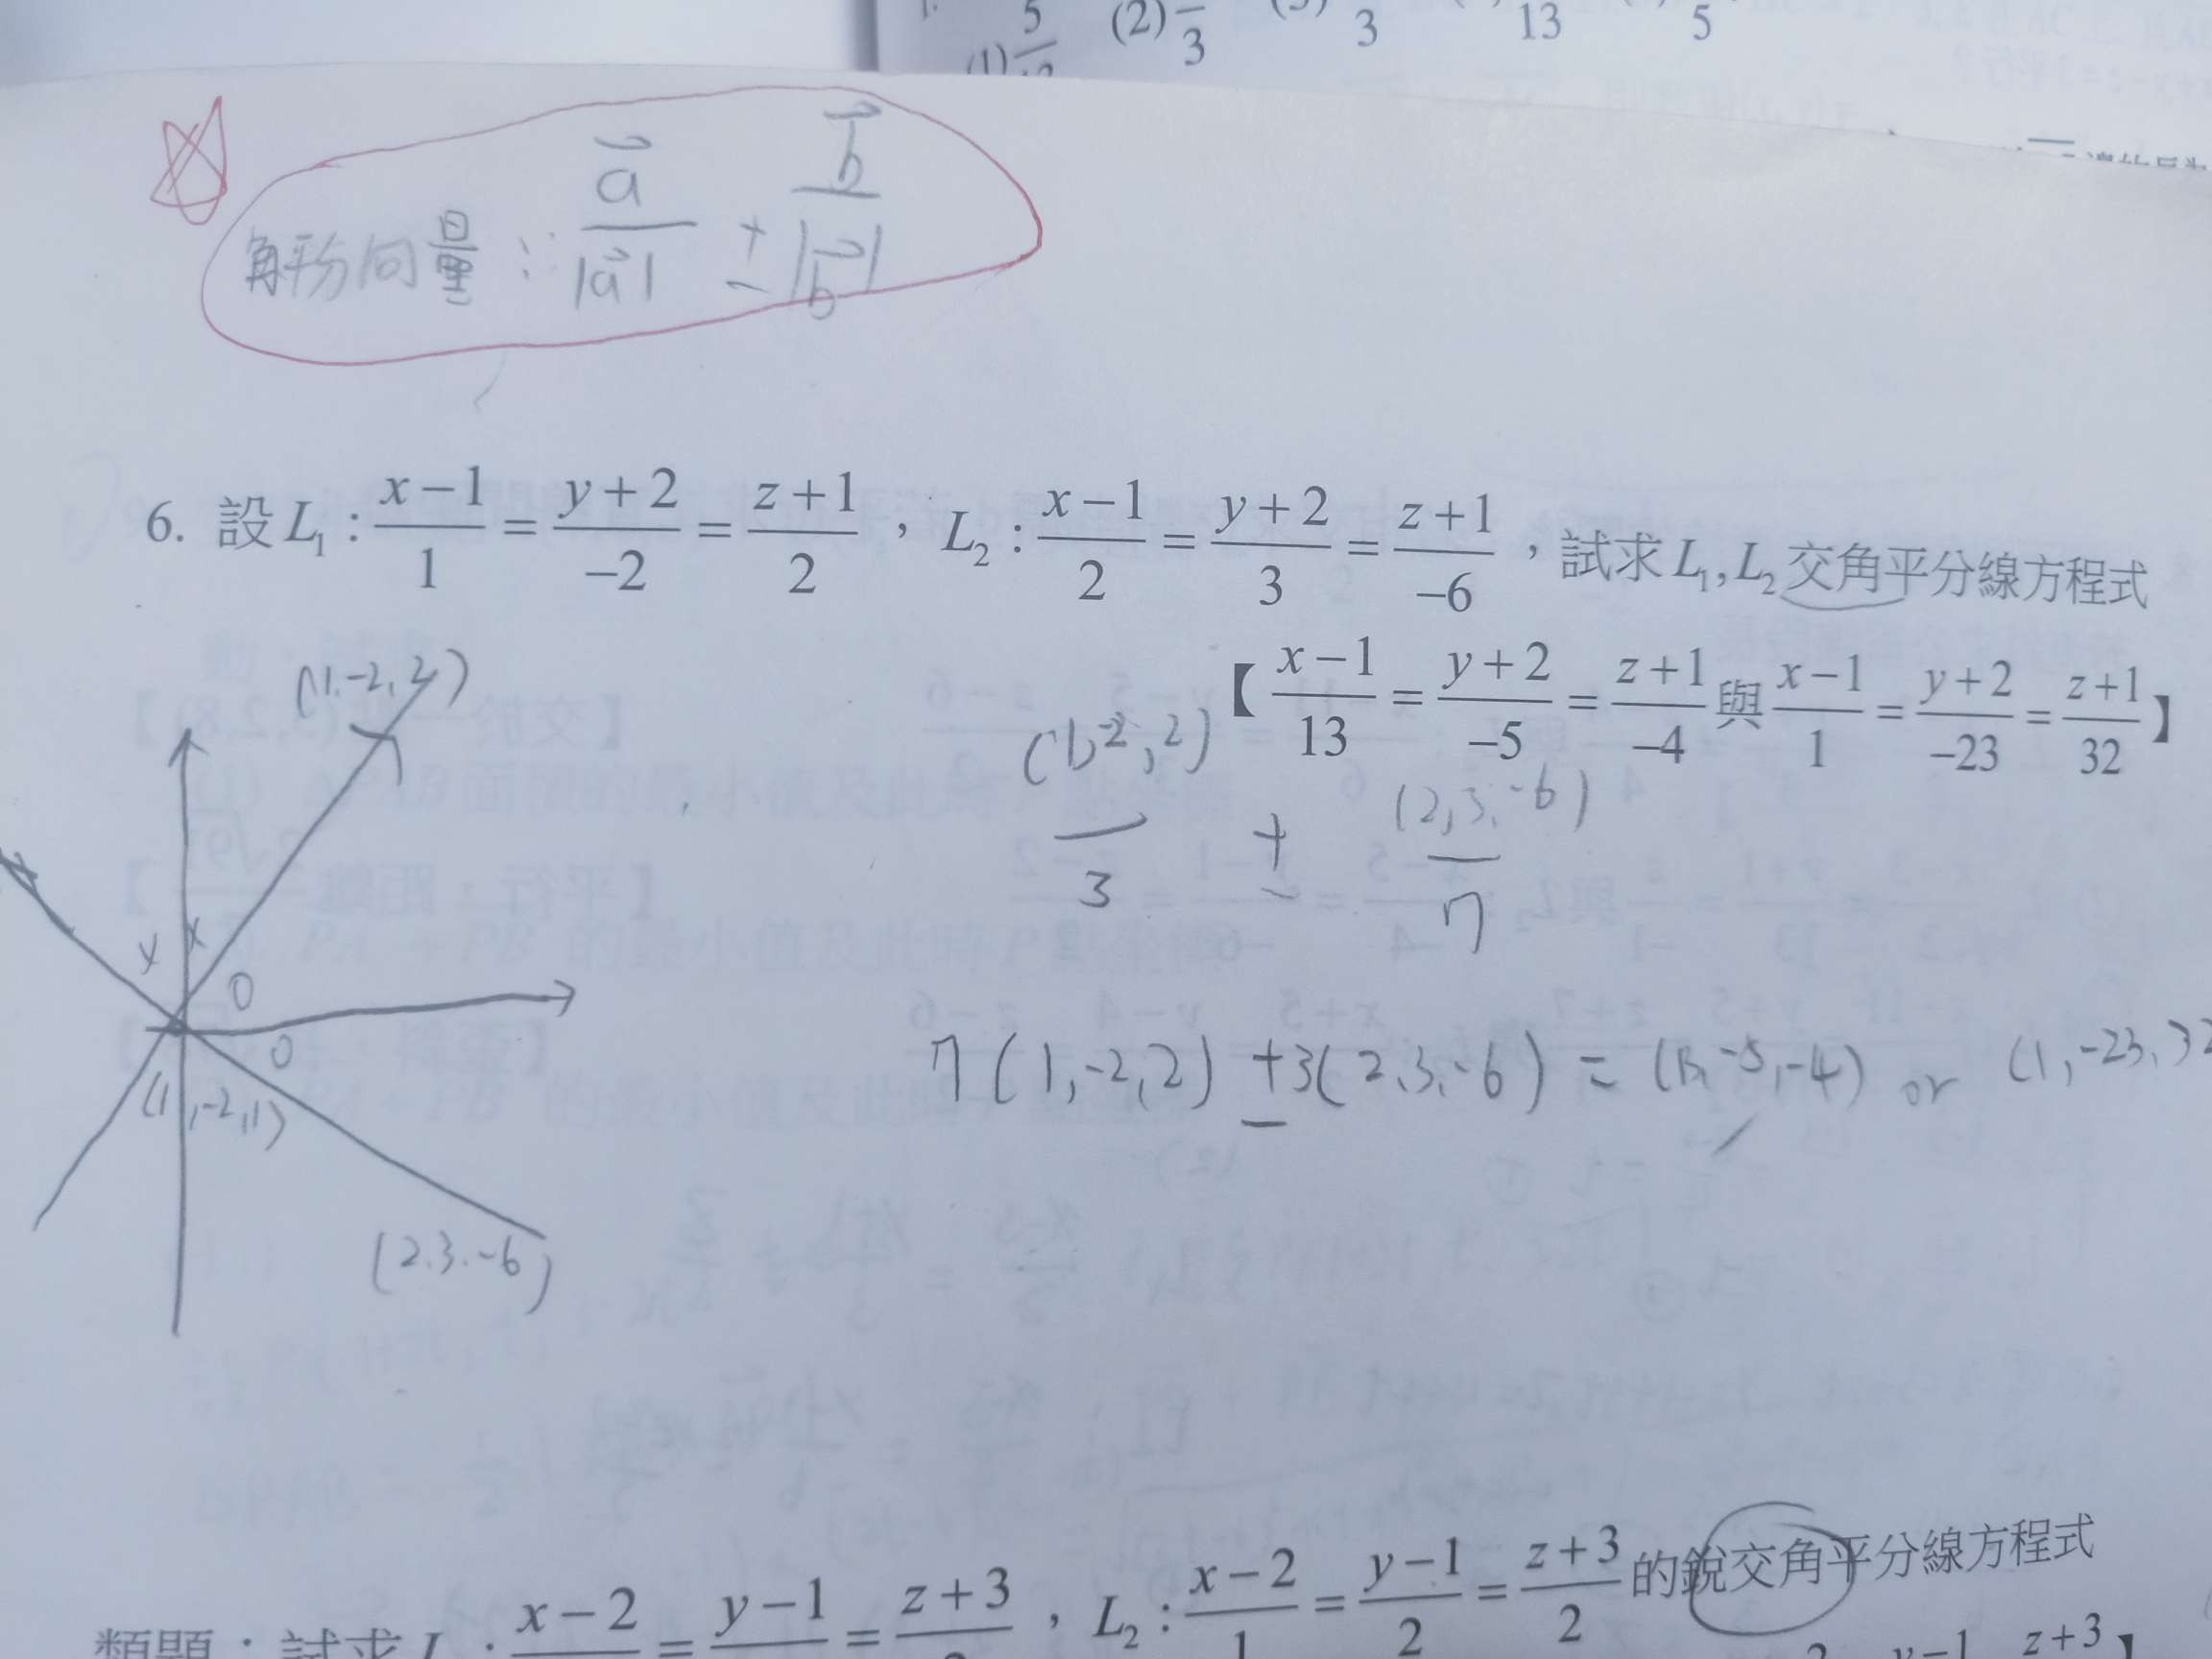 (2) 3 3 13 5
(1) 5
角平分向量： \vec{a}/|\vec{a}| ± \vec{b}/|\vec{b}|
6. 設 L₁ : (x−1)/1 = (y+2)/−2 = (z+1)/2 ， L₂ : (x−1)/2 = (y+2)/3 = (z+1)/−6 ，試求 L₁, L₂ 交角平分線方程式
【 (x−1)/13 = (y+2)/−5 = (z+1)/−4 與 (x−1)/1 = (y+2)/−23 = (z+1)/32 】
(1,-2,2)
(1,-2,2)/3 ± (2,3,-6)/7
x x
0
0
(1,-2,1)
(2.3.-6)
7(1,-2,2) ±3(2.3.-6) = (13,-5,-4) or (1,-23.32
類題：試求 L : x−2 = y−1 = z+3 ， L₂ : (x−2)/1 = (y−1)/2 = (z+3)/2 的銳交角平分線方程式
y−1 z+3 】